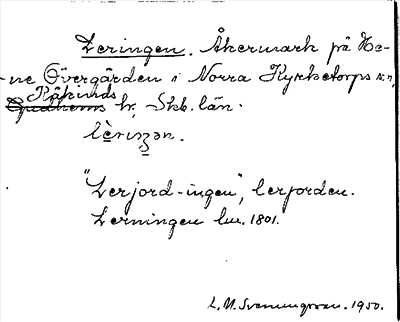 Leringen. Åkermark på He-
ne Övergården i Norra Kyrketorps sn,
Kåkinds
Gudhems hr, Skb. län.
lèrinȝən.
"Lerjord-ingen", lerjorden.
Lerningen lm. 1801.
L. M. Svenungsson. 1950.